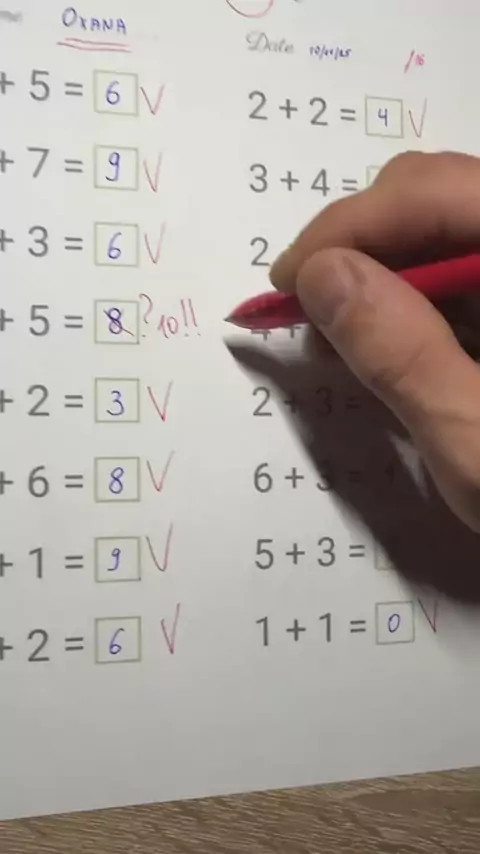 OXANA
Date 10/11/25 /16
+ 5 = 6 V
2 + 2 = 4 V
+ 7 = 9 V
3 + 4 =
+ 3 = 6 V
2
+ 5 = 8 ? 10!!
+ 2 = 3 V
2 + 3 =
+ 6 = 8 V
6 + 3 =
+ 1 = 9 V
5 + 3 =
+ 2 = 6 V
1 + 1 = 0 V